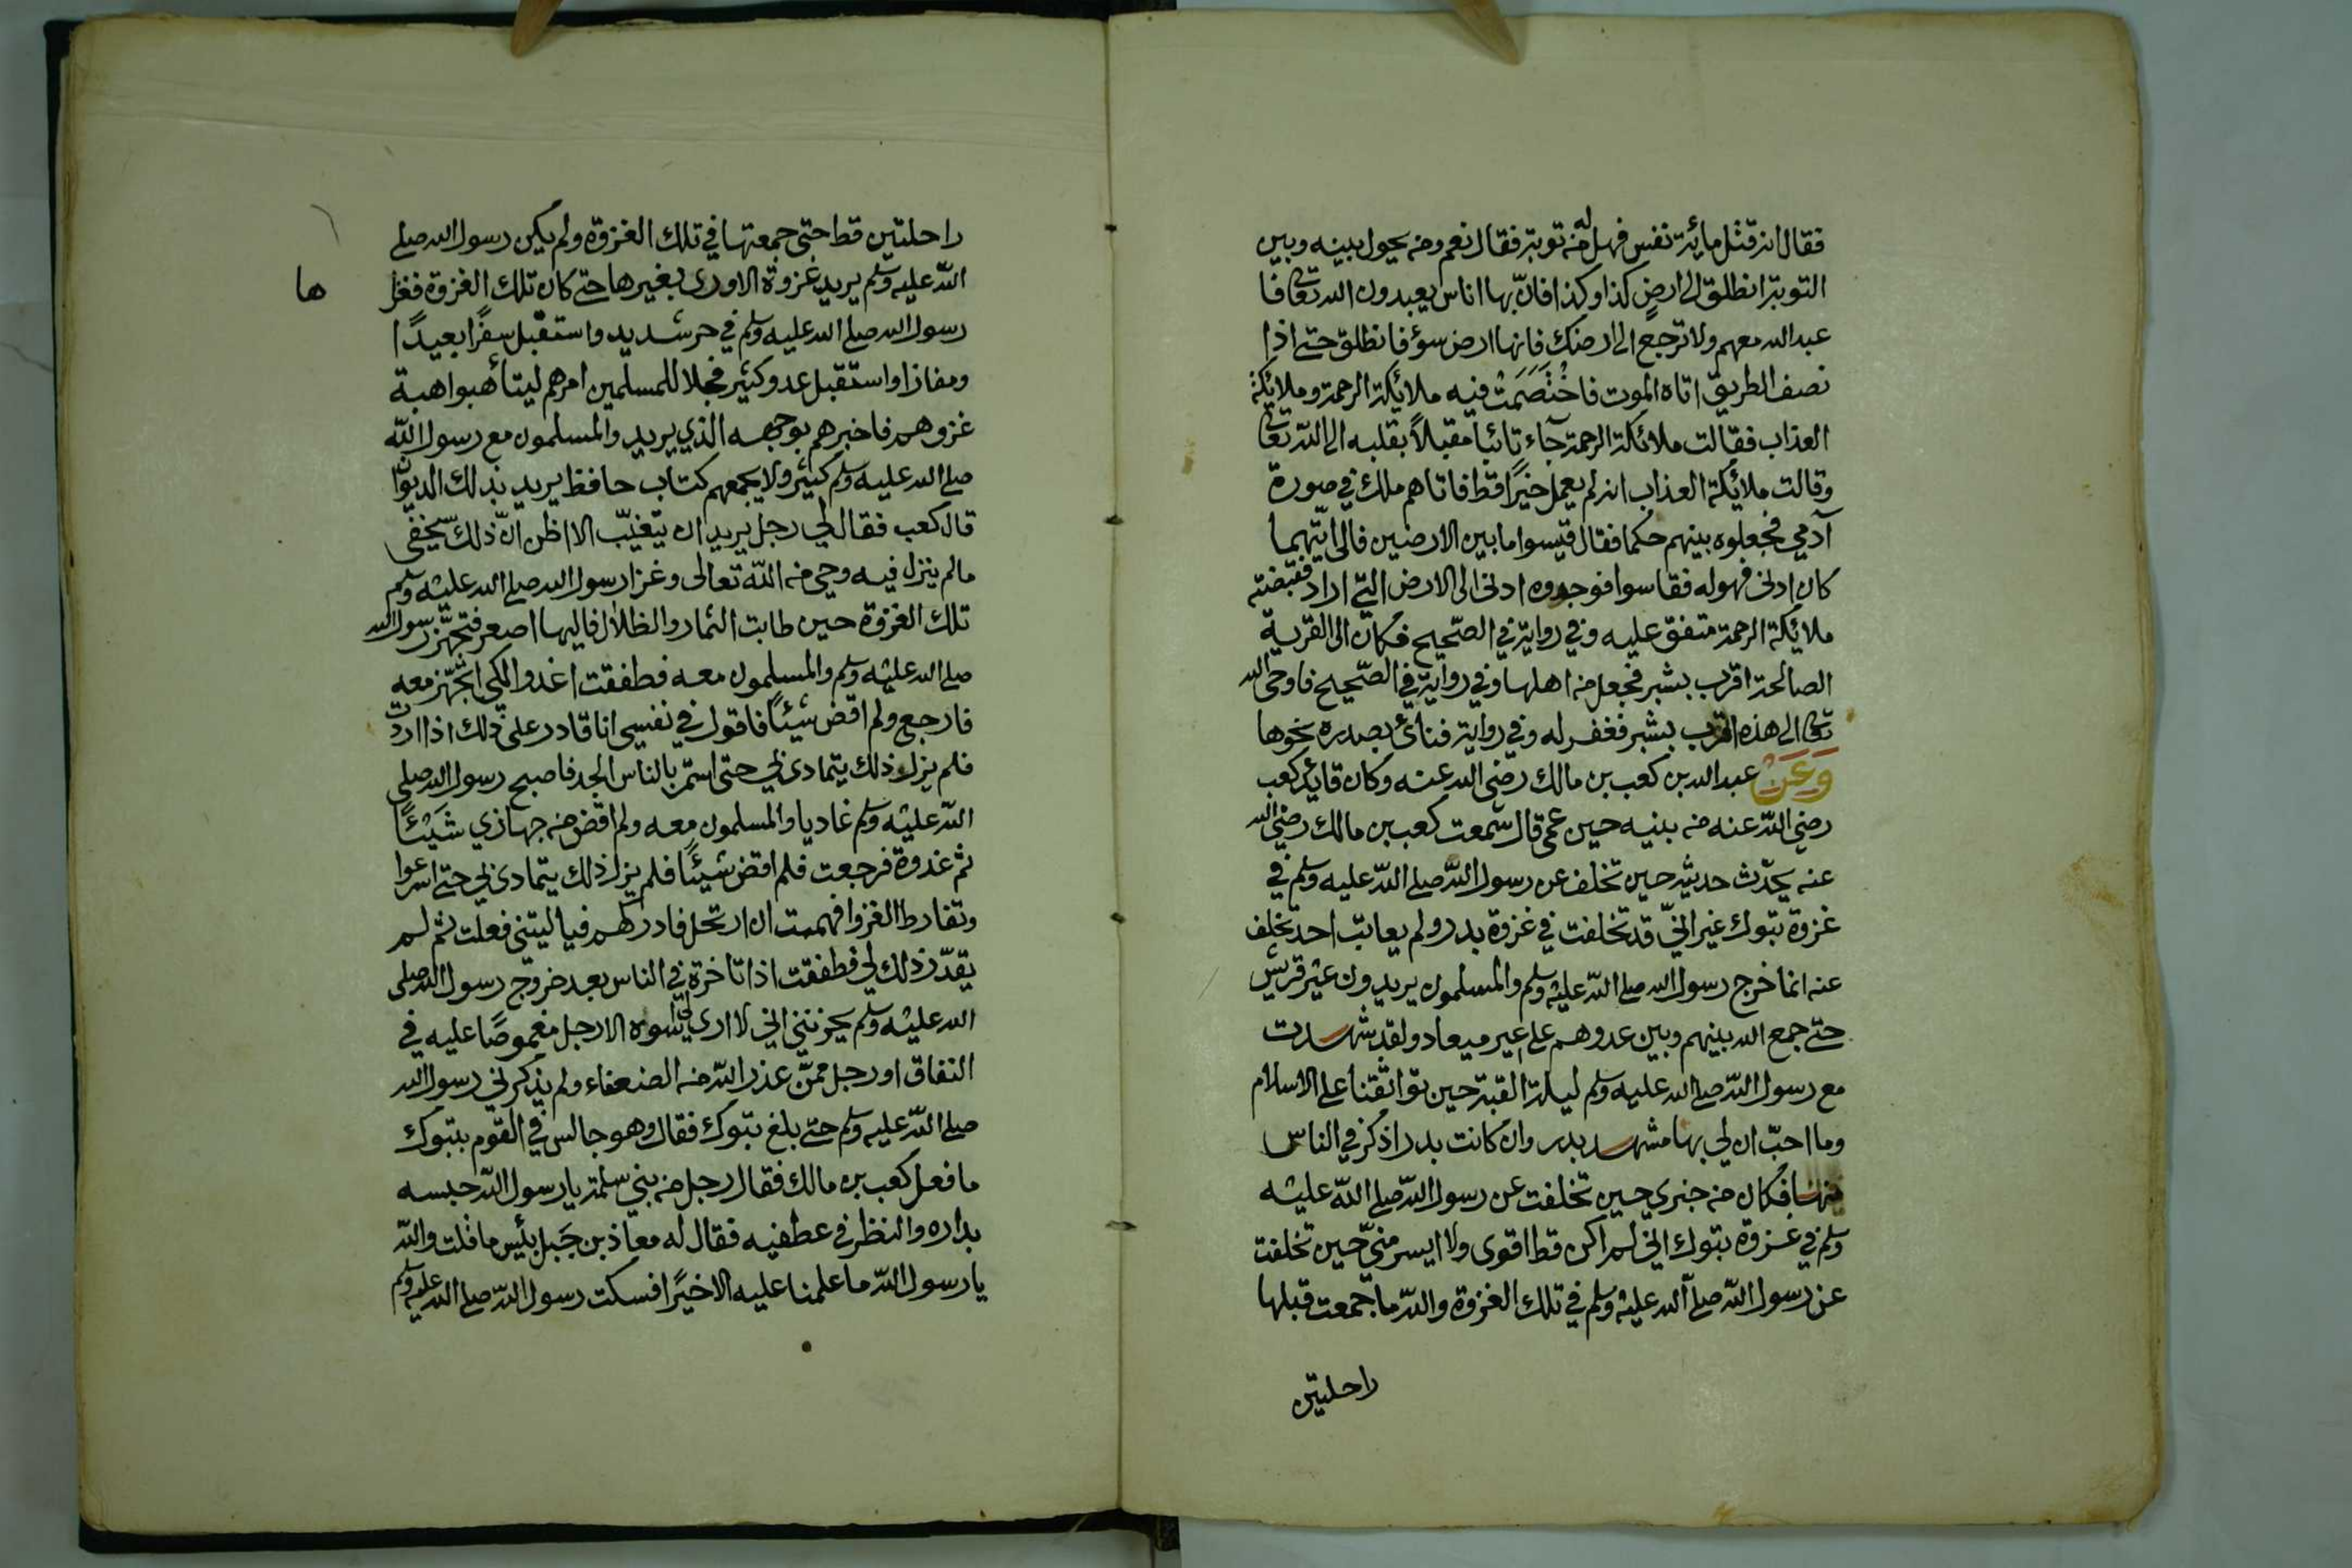 فقال انه قتل مائة نفس فهل له من توبة فقال نعم ومن يحول بينه وبين
التوبة انطلق الى ارضٍ كذا وكذا فانّ بها اناس يعبدون الله تعالى فا
عبد الله معهم ولا ترجع الى ارضك فانها ارض سوء فانطلق حتى اذا
نصف الطريق اتاه الموت فاخْتَصَمَتْ فيه ملائكة الرحمة وملائكة
العذاب فقالت ملائكة الرحمة جآء تائباً مقبلاً بقلبه الى اللّه تعالى
وقالت ملائكة العذاب انه لم يعمل خيرًا قط فاتاهم ملك في صورة
آدمي فجعلوه بينهم حكما فقال قيسوا ما بين الارضين فالى ايّتهما
كان ادنى فهو له فقاسوا فوجدوه ادنى الى الارض التي اراد فقبضته
ملائكة الرحمة متفق عليه وفي رواية في الصّحيح فكان الى القرية
الصالحة اقرب بشبر فجعل من اهلها وفي رواية في الصّحيح فاوحى الله
تعالى الى هذه اقرب بشبر فغفر له وفي رواية فنائ بصدره نحوها
وَعَنْ عبد الله بن كعب بن مالك رضي الله عنه وكان قايد كعب
رضي اللّه عنه من بنيه حين عمى قال سمعت كعب بن مالك رضي الله
عنه يحدّث حديثه حين تخلف عن رسول اللّه صلى اللّه عليه وسلم في
غزوة تبوك غير انيّ قد تخلفت في غزوة بدر ولم يعاتب احد تخلف
عنه انما خرج رسول الله صلى اللّه عليه وسلم والمسلمون يريدون عير قريش
حتى جمع الله بينهم وبين عدوهم على غير ميعاد ولقد شهدت
مع رسول اللّه صلى الله عليه وسلم ليلة القبة حين تواثقنا على الاسلام
وما احبّ ان لي بها مشهد بدر وان كانت بدر اذكر في الناس
منها فكان من خبري حين تخلفت عن رسول اللّه صلى اللّه عليه
وسلم في غزوة تبوك اني لم اكن قط اقوى ولا ايسر منيّ حين تخلفت
عن رسول اللّه صلى الله عليه وسلم في تلك الغزوة واللّه ما جمعت قبلها
راحلتين
راحلتين قط حتى جمعتها في تلك الغزوة ولم يكن رسول الله صلى
اللّه عليه وسلم يريد غزوة الا ورى بغيرها حتى كان تلك الغزوة فغزا
ها
رسول الله صلى الله عليه وسلم في حر شديد واستقبل سفرًا بعيدًا
ومفازا واستقبل عدو كثير فجلا للمسلمين امرهم ليتأهبوا اهبة
غزوهم فاخبرهم بوجهه الذي يريد والمسلمون مع رسول اللّه
صلى الله عليه وسلم كثير ولا يجمعهم كتاب حافظ يريد بذلك الديوّا
قال كعب فقال لي رجل يريد ان يتغيّب الا اظن انّ ذلك سيخفى
مالم ينزل فيه وحي من اللّه تعالى وغزا رسول الله صلى الله عليه وسلم
تلك الغزوة حين طابت الثمار والظلال فاليها اصعر فتجهّز رسول الله
صلى الله عليه وسلم والمسلمون معه فطفقت اغدوا لكي اتجهّز معه
فارجع ولم اقض شيئًا فاقول في نفسي انا قادر على ذلك اذا اردت
فلم يزل ذلك يتمادى لي حتى استمّر بالناس الجد فاصبح رسول الله صلى
اللّه عليه وسلم غاديا والمسلمون معه ولم اقض من جهازي شَيْئًا
ثم غدوة فرجعت فلم اقض شيئًا فلم يزل ذلك يتمادى لي حتى اسرعوا
وتفارط الغزوا فهممت ان ارتحل فادركهم فيا ليتني فعلت ثم لم
يقدّر ذلك لي فطفقت اذا تاخرة في الناس بعد خروج رسول الله صلى
الله عليه وسلم يحزنني اني لا ارى لي اسوه الا رجل مغموصًا عليه في
النفاق او رجل ممنّ عذر اللّه من الضعفاء ولم يذكرني رسول الله
صلى اللّه عليه وسلم حتى بلغ تبوك فقال وهو جالس في القوم بتبوك
ما فعل كعب بن مالك فقال رجل من بني سلمة يا رسول اللّه حبسه
بداره والنظر في عطفيه فقال له معاذ بن جَبل بئس ما قلت واللّه
يا رسول اللّه ما علمنا عليه الا خيرًا فسكت رسول اللّه صلى الله عليه وسلم